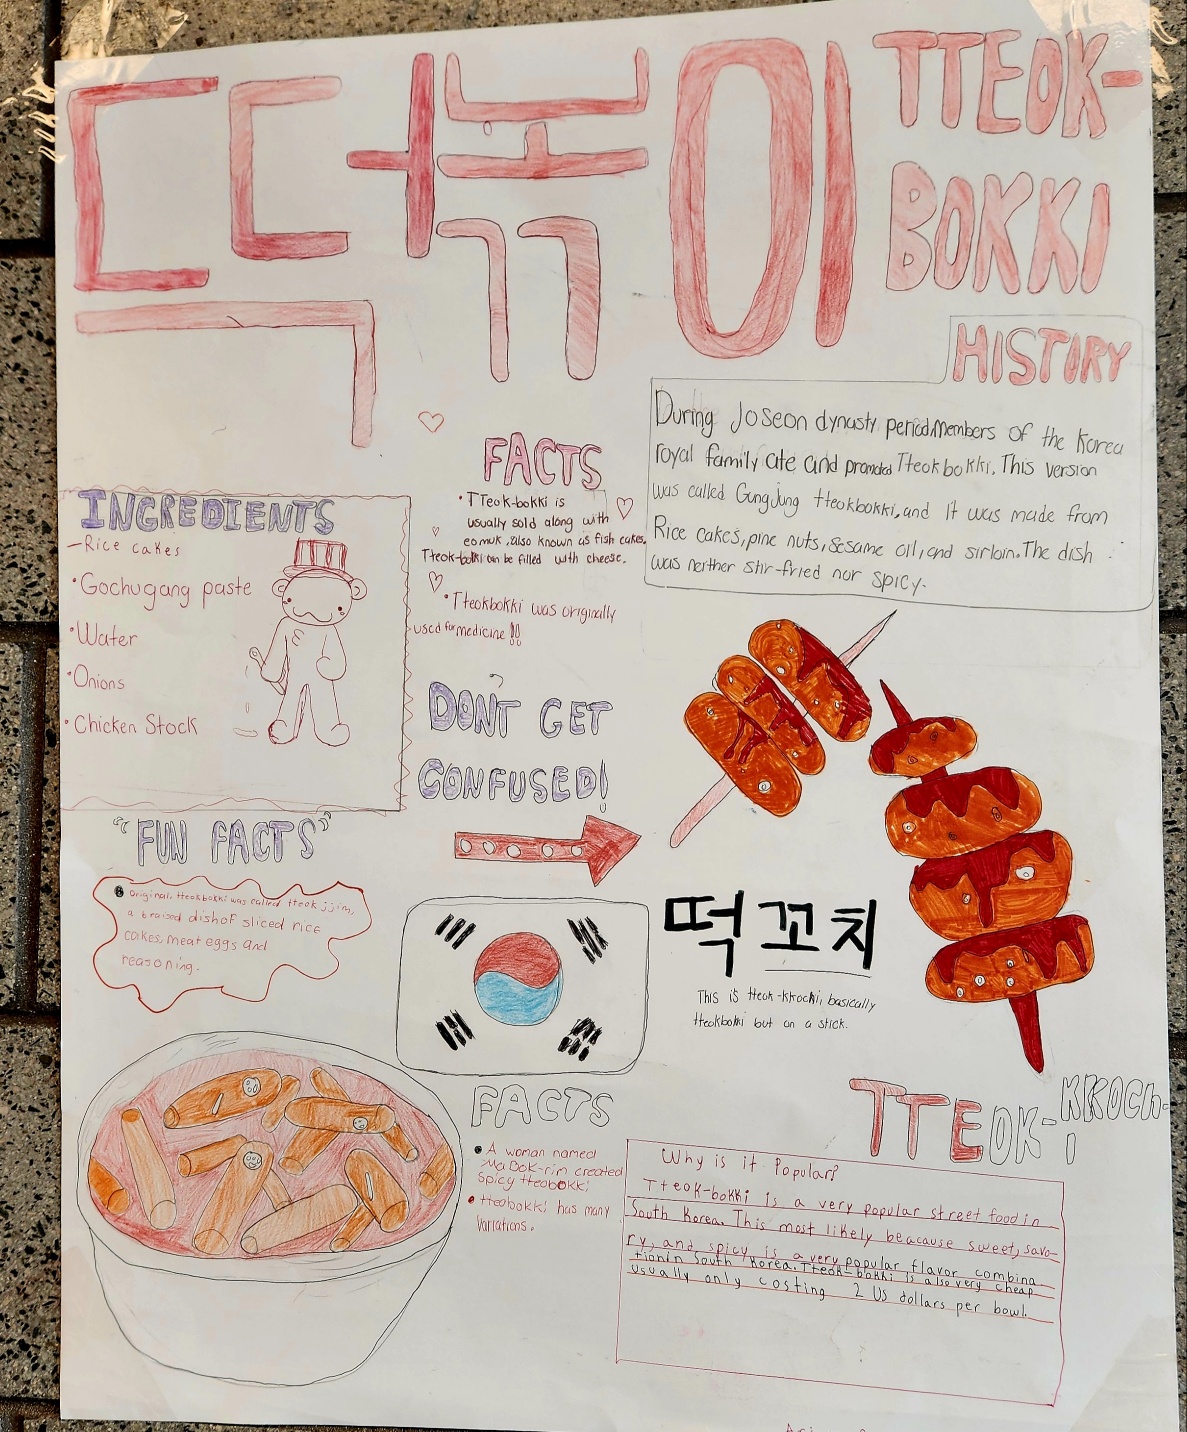 떡볶이
TTEOK-
BOKKI
HISTIRY
During Joseon dynasty period.Members of the Korea
royal family ate and promoted Tteokbokki. This version
was called Gungjung tteokbokki, and it was made from
Rice cakes, pine nuts, sesame oil, and sirloin. The dish
was neither stir-fried nor spicy.
FACTS
• TTeok-bokki is
usually sold along with
eomuk, also known as fish cakes.
Tteok-bokki can be filled with cheese.
• Tteokbokki was originally
used for medicine!!
INGREDIENTS
- Rice cakes
• Gochugang paste
• Water
• Onions
• Chicken Stock
DON'T GET
CONFUSED!
"FUN FACTS"
• Original, tteokbokki was called tteok jjim,
a braised dish of sliced rice
cakes, meat eggs and
reasoning.
떡꼬치
This is tteok-kkochi, basically
tteokbokki but on a stick.
TTEOK-KKOCH-
I
FACTS
• A woman named
Ma Bok-rim created
spicy tteobokki
• tteobokki has many
variations.
Why is it Popular?
Tteok-bokki is a very popular street food in
South Korea. This most likely beacause sweet, savo-
ry, and spicy is a very popular flavor combina
-tionin South Korea. Tteok-bokki is also very cheap
usually only costing 2 US dollars per bowl.